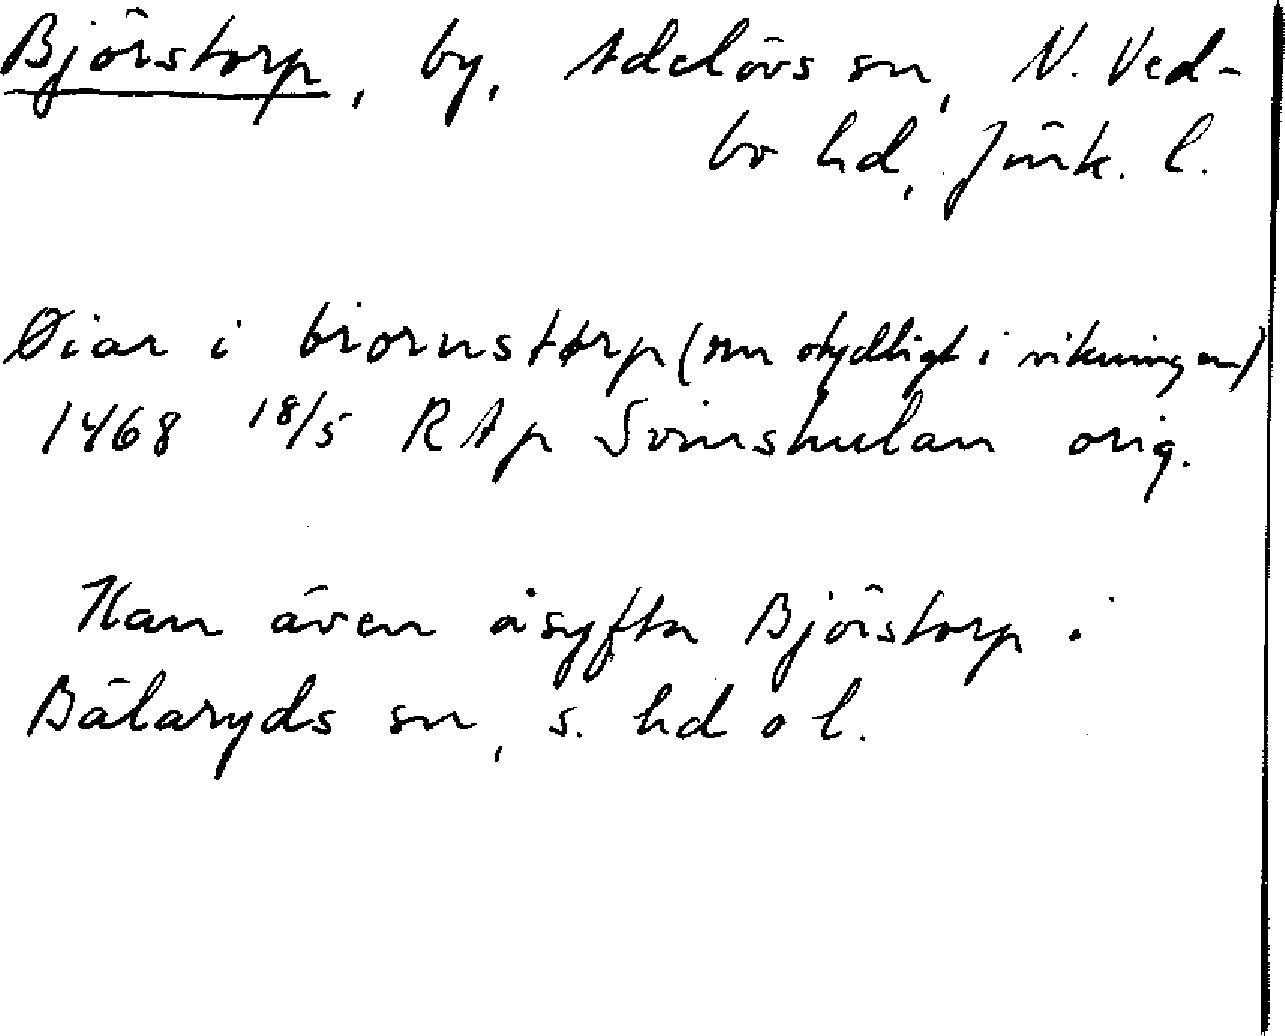 Björstorp, by, Adelövs sn, N. Ved-
bo hd, Jönk. l.
Øiar i biornstørp (rnn otydligt i vikningen)
1468 18/5 RAp Svinshulan orig.
Kan även åsyfta Björstorp i
Bälaryds sn, s. hd o l.